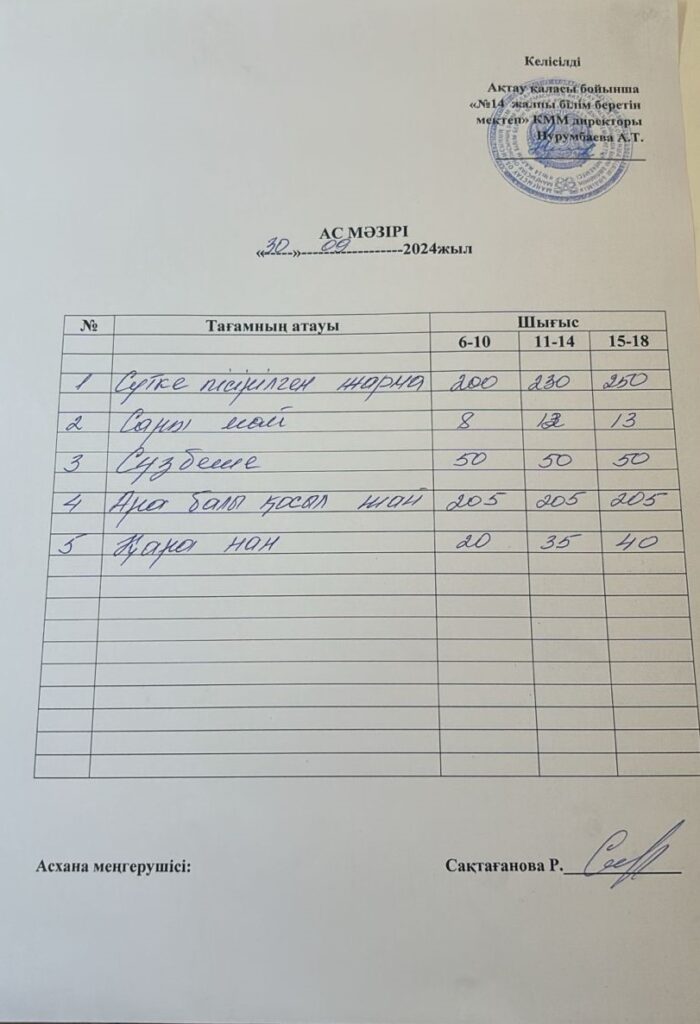 Келісілді
Ақтау қаласы бойынша
«№14 жалпы білім беретін
мектеп» КММ директоры
Нурумбаева А.Т.
АС МӘЗІРІ
«30» 09 2024жыл
№ Тағамның атауы Шығыс
6-10 11-14 15-18
1 Сүтке пісірілген жарма 200 230 250
2 Сары май 8 13
3 Сүзбеше 50 50 50
4 Ара балы қосыл шай 205 205 205
5 Қара нан 20 35 40
Асхана меңгерушісі: Сақтағанова Р.